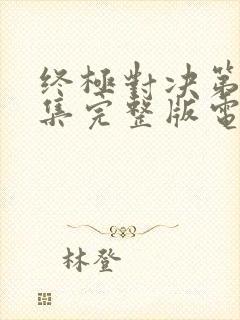 终極對决第
集完整版電
林登